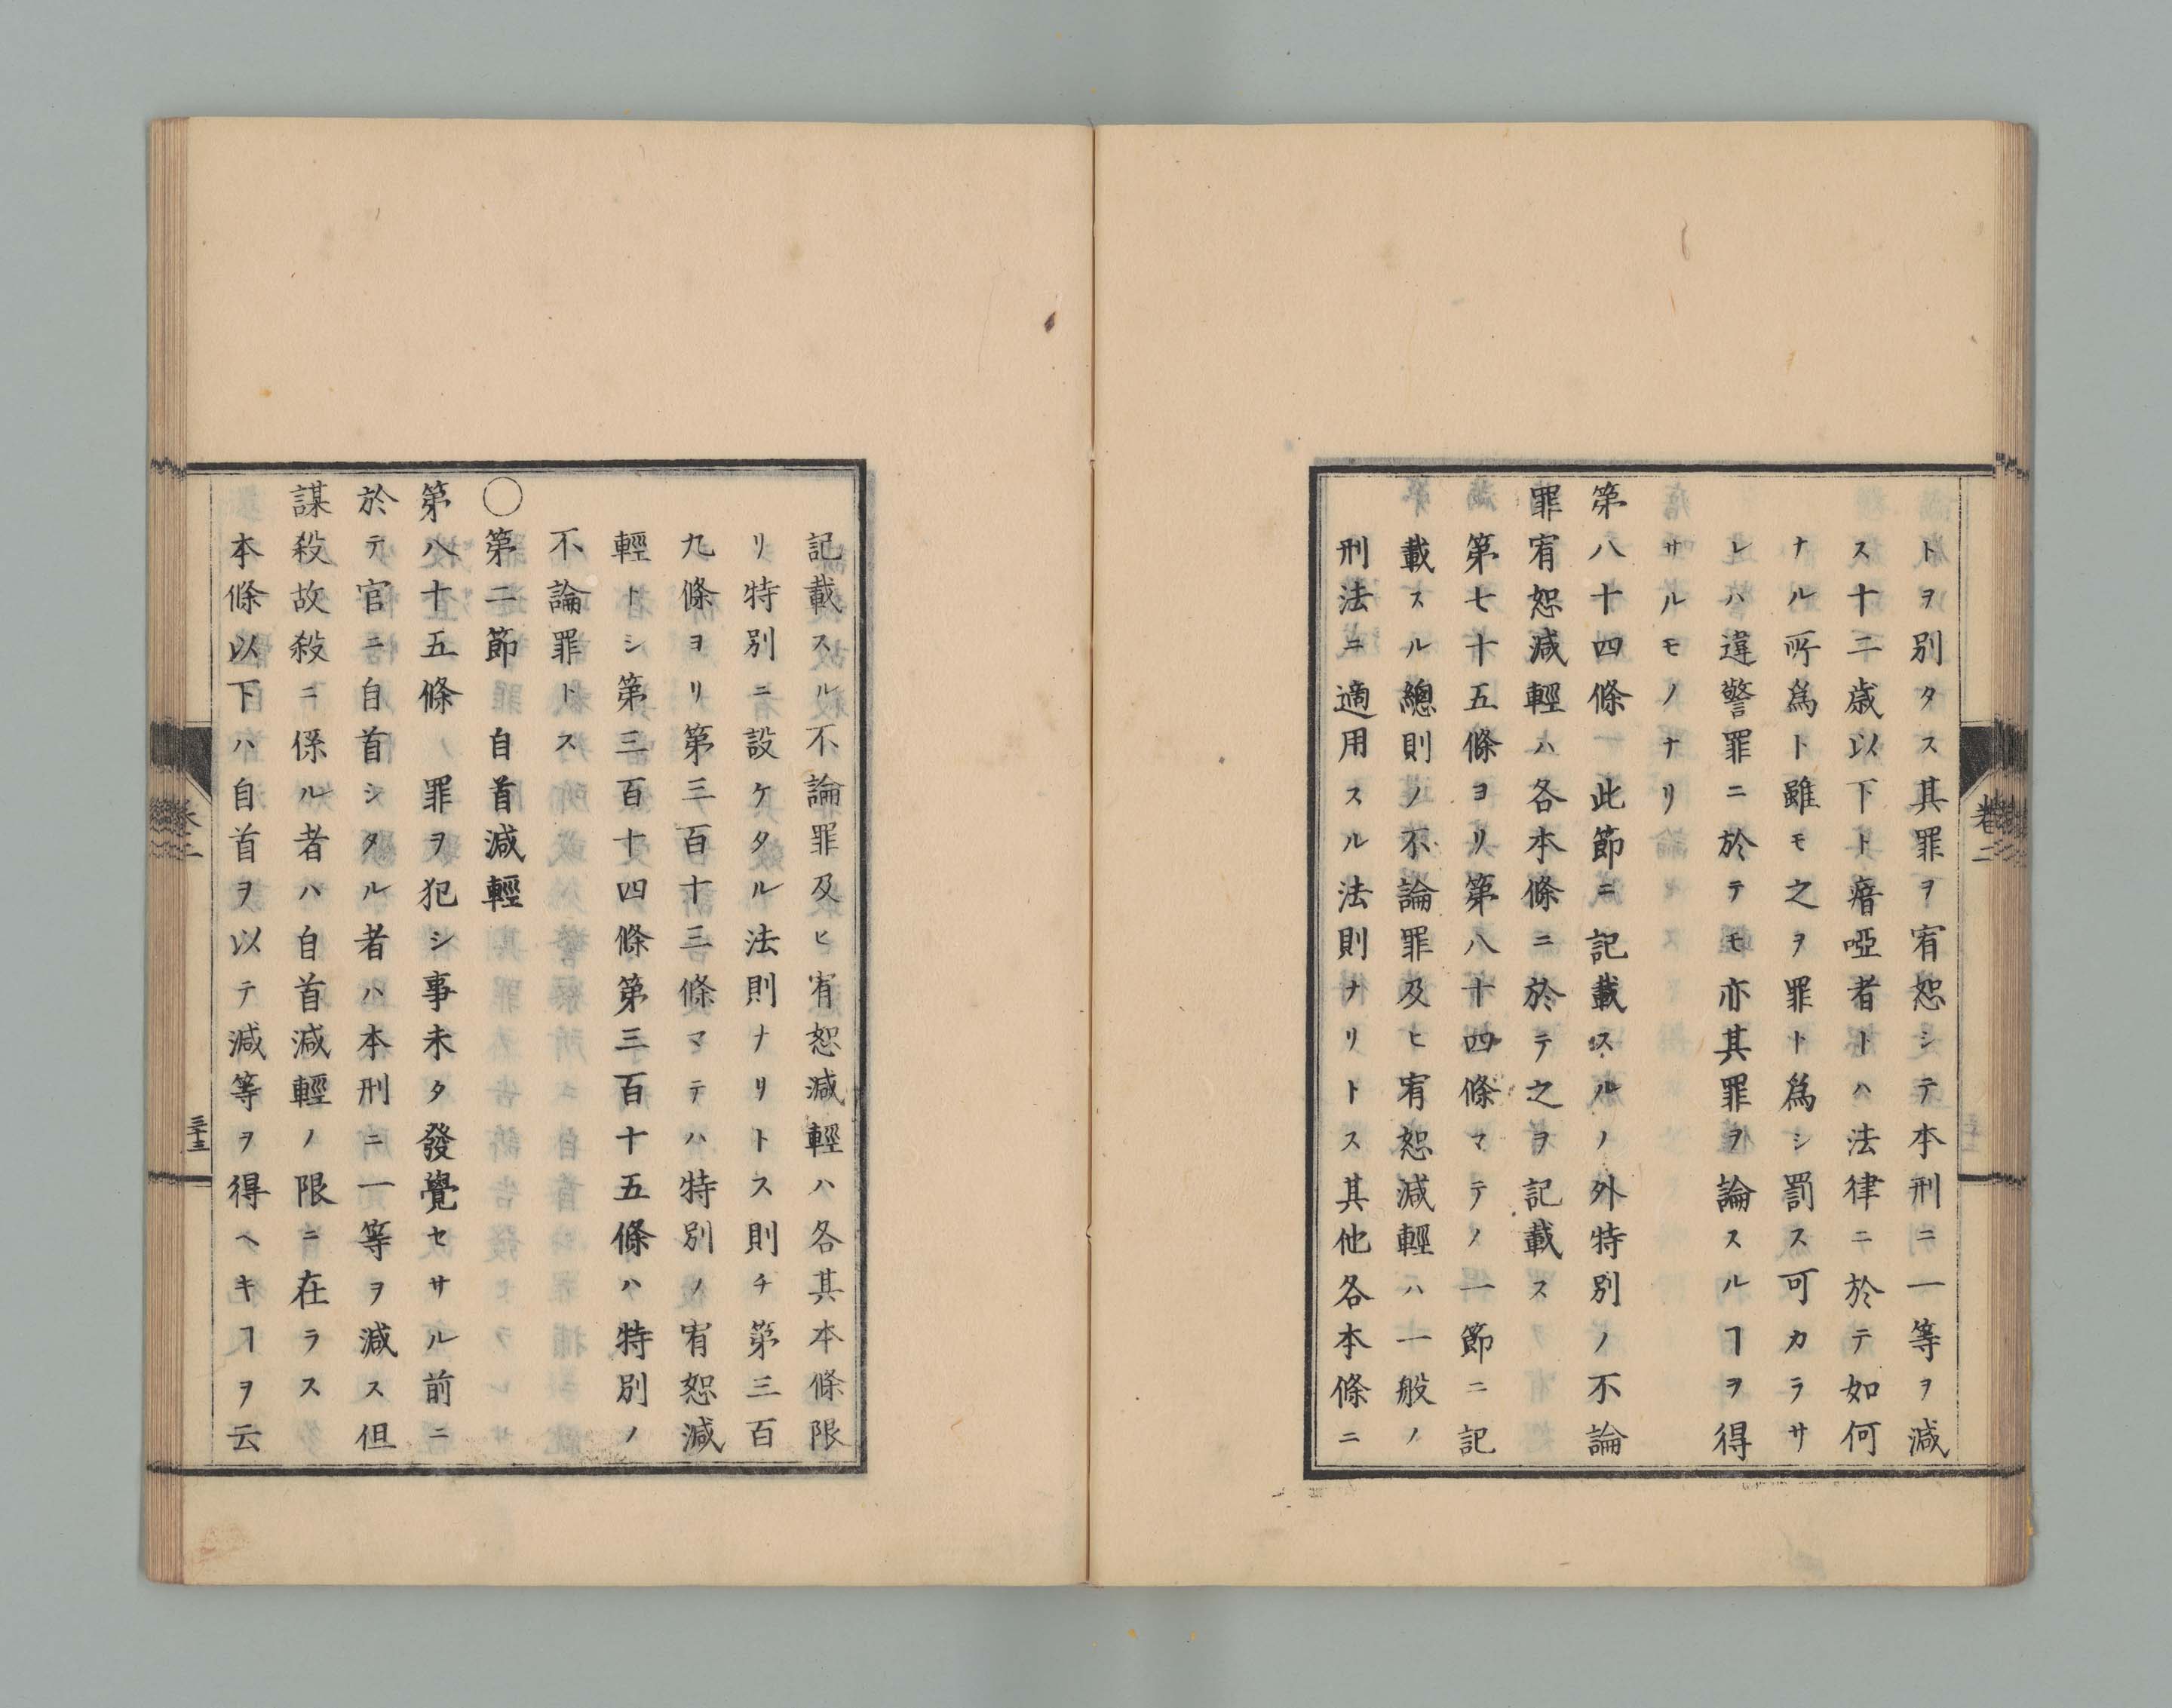 トヲ別タス其罪ヲ宥恕シテ本刑ニ一等ヲ減
ス十二歳以下ト瘖啞者トハ法律ニ於テ如何
ナル所爲ト雖モ之ヲ罪ト爲シ罰ス可カラサ
レハ違警罪ニ於テモ亦其罪ヲ論スルヿヲ得
サルモノナリ
第八十四條 此節ニ記載スルノ外特別ノ不論
罪宥恕減輕ハ各本條ニ於テ之ヲ記載ス
第七十五條ヨリ第八十四條マテノ一節ニ記
載スル總則ノ不論罪及ヒ宥恕減輕ハ一般ノ
刑法ニ適用スル法則ナリトス其他各本條ニ
卷二
記載スル不論罪及ヒ宥恕減輕ハ各其本條限
リ特別ニ設ケタル法則ナリトス則チ第三百
九條ヨリ第三百十三條マテハ特別ノ宥恕減
輕トシ第三百十四條第三百十五條ハ特別ノ
不論罪トス
〇第二節 自首減輕
第八十五條 罪ヲ犯シ事未タ發覺セサル前ニ
於テ官ニ自首シタル者ハ本刑ニ一等ヲ減ス但
謀殺故殺ニ係ル者ハ自首減輕ノ限ニ在ラス
本條以下ハ自首ヲ以テ減等ヲ得ヘキヿヲ云
卷二
三十三